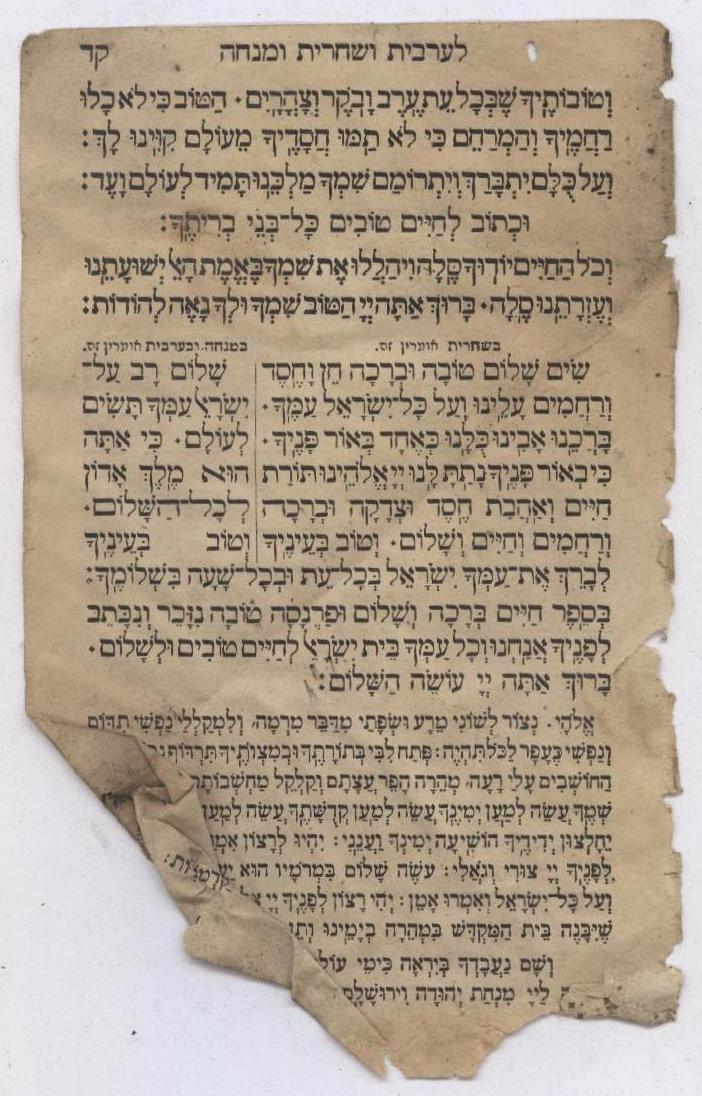 לערבית ושחרית ומנחה קד
וְטוֹבוֹתֶיךָ שֶׁבְּכָל עֵת עֶרֶב וָבֹקֶר וְצָהֳרָיִם. הַטּוֹב כִּי לֹא כָלוּ
רַחֲמֶיךָ וְהַמְרַחֵם כִּי לֹא תַמּוּ חֲסָדֶיךָ מֵעוֹלָם קִוִּינוּ לָךְ:
וְעַל כֻּלָּם יִתְבָּרַךְ וְיִתְרוֹמַם שִׁמְךָ מַלְכֵּנוּ תָּמִיד לְעוֹלָם וָעֶד:
וּכְתוֹב לְחַיִּים טוֹבִים כָּל־בְּנֵי בְרִיתֶךָ:
וְכֹל הַחַיִּים יוֹדוּךָ סֶּלָה וִיהַלְלוּ אֶת שִׁמְךָ בֶּאֱמֶת הָאֵל יְשׁוּעָתֵנוּ
וְעֶזְרָתֵנוּ סֶלָה. בָּרוּךְ אַתָּה יְיָ הַטּוֹב שִׁמְךָ וּלְךָ נָאֶה לְהוֹדוֹת:
בשחרית אומרין זס.
שִׂים שָׁלוֹם טוֹבָה וּבְרָכָה חֵן וָחֶסֶד
וְרַחֲמִים עָלֵינוּ וְעַל כָּל־יִשְׂרָאֵל עַמֶּךָ.
בָּרְכֵנוּ אָבִינוּ כֻּלָּנוּ כְּאֶחָד בְּאוֹר פָּנֶיךָ.
כִּי בְאוֹר פָּנֶיךָ נָתַתָּ לָּנוּ יְיָ אֱלֹהֵינוּ תּוֹרַת
חַיִּים וְאַהֲבַת חֶסֶד וּצְדָקָה וּבְרָכָה
וְרַחֲמִים וְחַיִּים וְשָׁלוֹם. וְטוֹב בְּעֵינֶיךָ
במנחה ובערבית אומרין זס.
שָׁלוֹם רָב עַל־
יִשְׂרָאֵל עַמְּךָ תָּשִׂים
לְעוֹלָם. כִּי אַתָּה
הוּא מֶלֶךְ אָדוֹן
לְכָל־הַשָּׁלוֹם.
וְטוֹב בְּעֵינֶיךָ
לְבָרֵךְ אֶת־עַמְּךָ יִשְׂרָאֵל בְּכָל־עֵת וּבְכָל־שָׁעָה בִּשְׁלוֹמֶךָ:
בְּסֵפֶר חַיִּים בְּרָכָה וְשָׁלוֹם וּפַרְנָסָה טוֹבָה נִזָּכֵר וְנִכָּתֵב
לְפָנֶיךָ אֲנַחְנוּ וְכָל עַמְּךָ בֵּית יִשְׂרָאֵל לְחַיִּים טוֹבִים וּלְשָׁלוֹם.
בָּרוּךְ אַתָּה יְיָ עוֹשֵׂה הַשָּׁלוֹם:
אֱלֹהָי. נְצוֹר לְשׁוֹנִי מֵרָע וּשְׂפָתַי מִדַּבֵּר מִרְמָה. וְלִמְקַלְלַי נַפְשִׁי תִדּוֹם
וְנַפְשִׁי כֶּעָפָר לַכֹּל תִּהְיֶה: פְּתַח לִבִּי בְּתוֹרָתֶךָ וּבְמִצְוֹתֶיךָ תִּרְדּוֹף
הַחוֹשְׁבִים עָלַי רָעָה. מְהֵרָה הָפֵר עֲצָתָם וְקַלְקֵל
שְׁמֶךָ עֲשֵׂה לְמַעַן יְמִינֶךָ עֲשֵׂה לְמַעַן קְדֻשָּׁתֶךָ עֲשֵׂה לְמַעַן
יֵחָלְצוּן יְדִידֶיךָ הוֹשִׁיעָה יְמִינְךָ וַעֲנֵנִי: יִהְיוּ לְרָצוֹן
לְפָנֶיךָ יְיָ צוּרִי וְגֹאֲלִי: עֹשֶׂה שָׁלוֹם בִּמְרֹמָיו הוּא
וְעַל כָּל־יִשְׂרָאֵל וְאִמְרוּ אָמֵן: יְהִי רָצוֹן לְפָנֶיךָ יְיָ
שֶׁיִּבָּנֶה בֵּית הַמִּקְדָּשׁ בִּמְהֵרָה בְיָמֵינוּ
וְשָׁם נַעֲבָדְךָ בְּיִרְאָה כִּימֵי
לַייָ מִנְחַת יְהוּדָה וִירוּשָׁלָםִ
קַדְמֹנִיּוֹת: